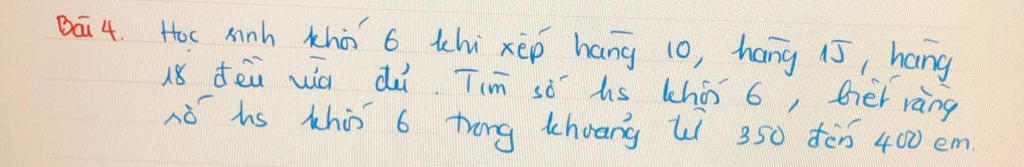 Bài 4. Học sinh khối 6 khi xếp hàng 10, hàng 15, hàng
18 đều vừa đủ. Tìm số hs khối 6, biết rằng
số hs khối 6 trong khoảng từ 350 đến 400 em.